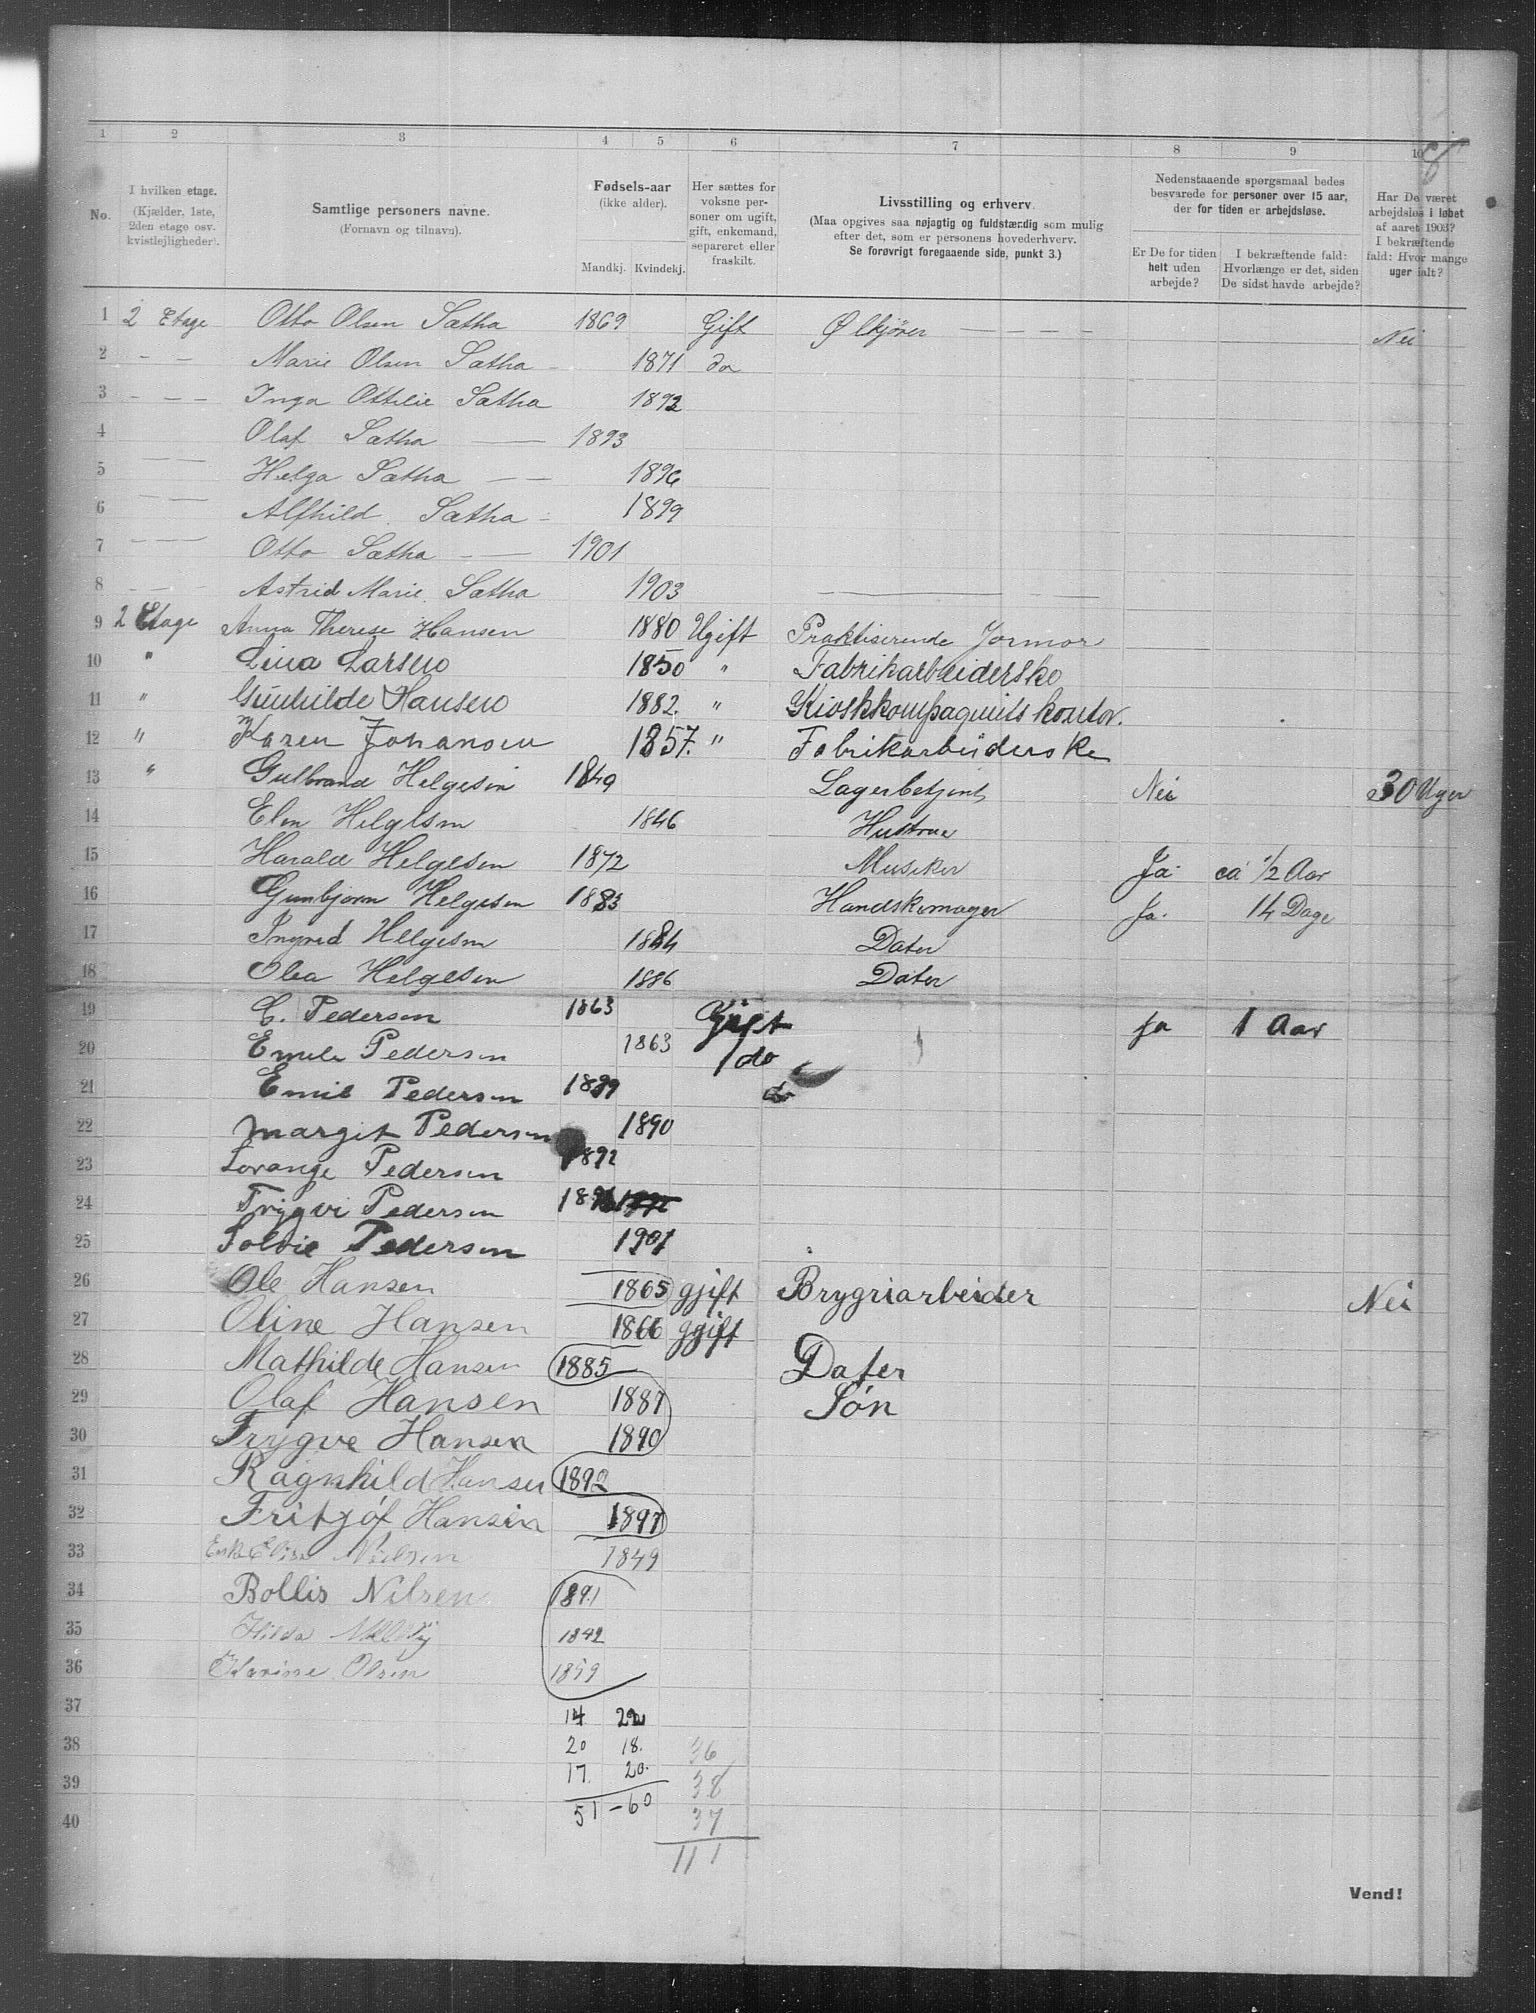 1 2 3 4 5 6 7 8 9 10
8
No.
I hvilken etage.
(Kjælder, 1ste,
2den etage osv.
kvistlejligheder).
Samtlige personers navne.
(Fornavn og tilnavn).
Fødsels-aar
(ikke alder).
Mandkj. Kvindekj.
Her sættes for
voksne per-
soner om ugift,
gift, enkemand,
separeret eller
fraskilt.
Livsstilling og erhverv.
(Maa opgives saa nøjagtig og fuldstændig som mulig
efter det, som er personens hovederhverv.
Se forøvrigt foregaaende side, punkt 3.)
Nedenstaaende spørgsmaal bedes
besvarede for personer over 15 aar,
der for tiden er arbejdsløse.
Er De for tiden
helt uden
arbejde?
I bekræftende fald:
Hvorlænge er det, siden
De sidst havde arbejde?
Har De været
arbejdsløs i løbet
af aaret 1903?
I bekræftende
fald: Hvor mange
uger ialt?
1 2 Etage Otto Olsen Sætha 1869 Gift Ølkjører — — — — Nei
2 – – Marie Olsen Sætha – 1871 do
3 – – – Inga Ottilie Sætha 1892
4 Olaf Sætha — 1893
5 — — Helga Sætha — — 1896
6 — — Alfhild Sætha – 1899
7 — — — Otto Sætha — — 1901
8 — — Astrid Marie Sætha 1903
9 2 Etage Anna Therese Hansen 1880 Ugift Praktiserende Jormor
10 " Lina Larsen 1850 " Fabrikarbeiderske
11 " Gunhilde Hansen 1882. " Kioskkompagniets kontor.
12 " Karen Johansen 1857. " Fabrikarbeiderske
13 " Gulbrand Helgesen 1849 Lagerbetjent Nei 30 Uger
14 Elen Helgesen 1846 Hustrue
15 Harald Helgesen 1872 Musiker Ja ca 1/2 Aar
16 Gunbjørn Helgesen 1883 Handskemager Ja. 14 Dage
17 Ingrid Helgesen 1884 Dater
18 Olea Helgesen 1886 Dater
19 C. Pedersen 1863 Gift Ja 1 Aar
20 Emile Pedersen 1863 do
21 Emil Pedersen 1889
22 Margit Pedersen 1890
23 Lorange Pedersen 1892
24 Trygvi Pedersen 189
25 Solvie Pedersen 1901
26 Ole Hansen 1865 gjift Brygriarbeider Nei
27 Oline Hansen 1866 gjift
28 Mathilde Hansen 1885 Dater
29 Olaf Hansen 1887 Søn
30 Trygve Hansen 1890
31 Ragnhild Hansen 1892
32 Fritjóf Hansen 1897
33 Enke Elise Nielsen 1849
34 Bollis Nilsen 1891
35 Hilda 1842
36 Karine Olsen 1859
37 14 22
38 20 18. 36
39 17. 20. 38
40 51 – 60 37
111
Vend!